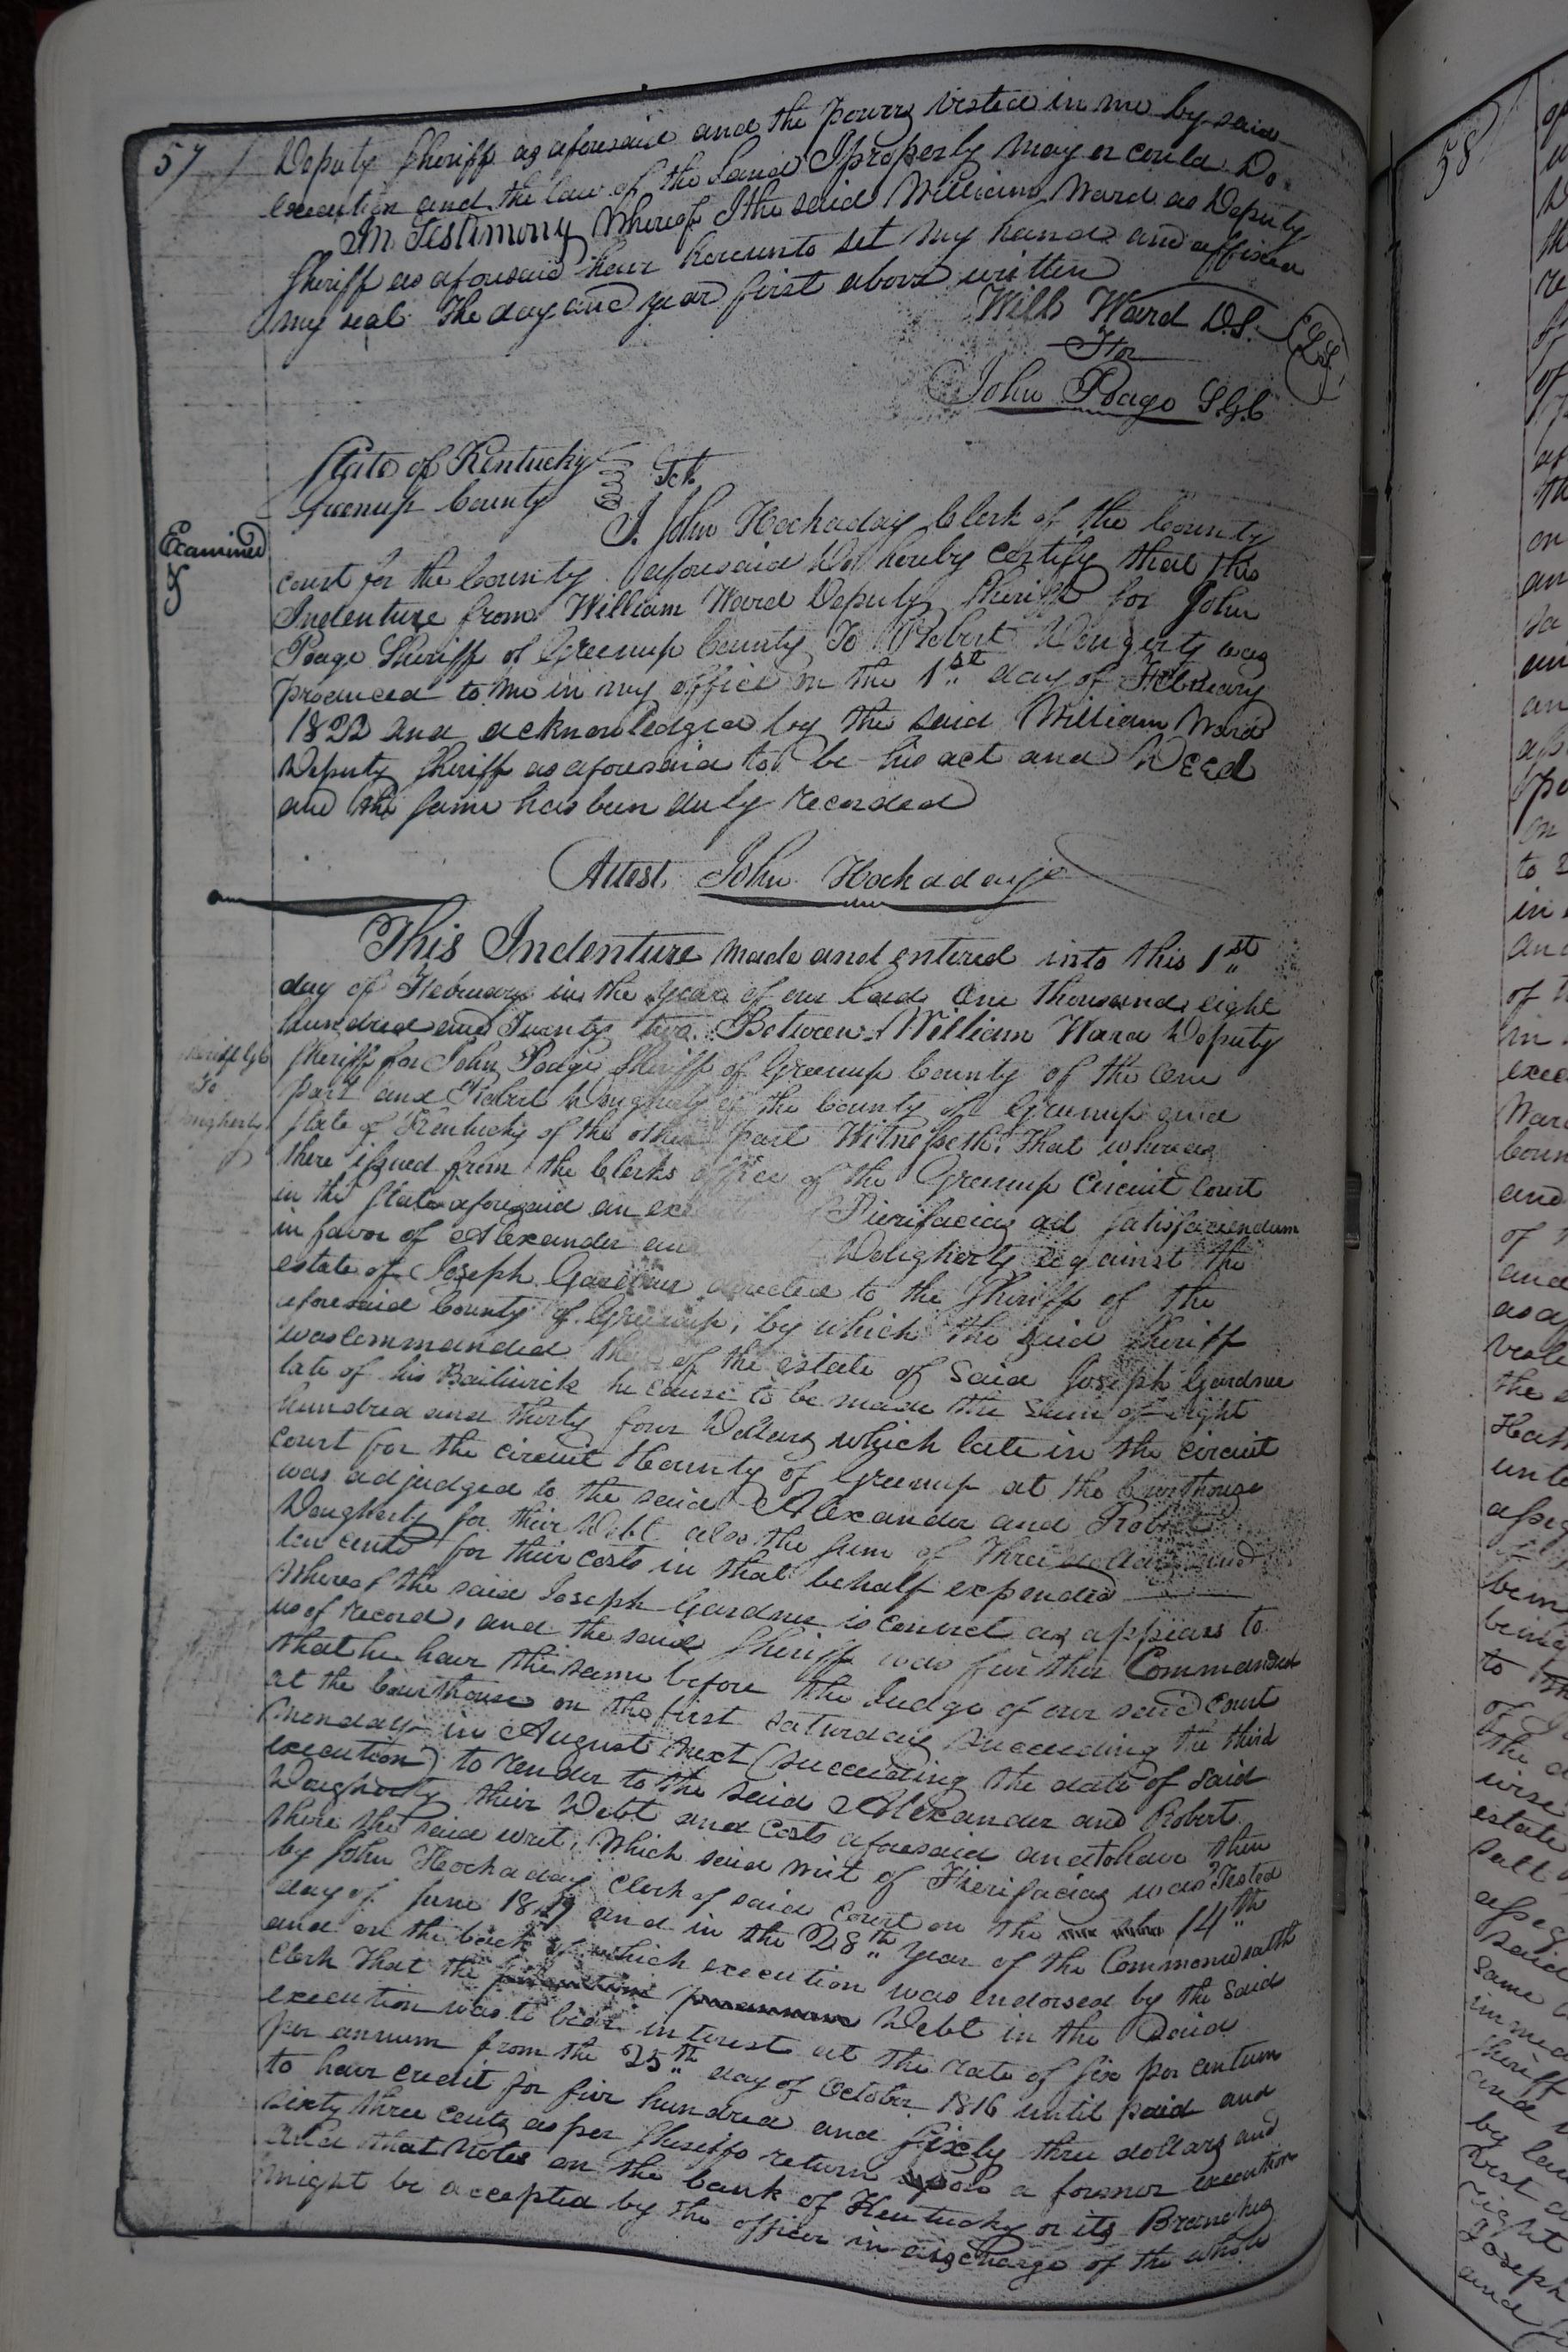 57
Deputy Sheriff as aforesaid and the powers vested in me by said
execution and the law of the Land I properly may or could Do.
In Testimony Whereof I the said William Ward as Deputy
Sheriff as aforesaid have hereunto set my hand and affixed
my seal the day and year first above written
Will Ward D.S. L.S.
For
John Poage S.G.C
State of Kentucky
Greenup County Sct
I. John Hockaday Clerk of the County
Examined
court for the County aforesaid Do hereby certify that this
Indenture from William Ward Deputy Sheriff for John
Poage Sheriff of Greenup County To Robert Dougerty was
produced to me in my office on the 1st day of February
1822 and acknowledged by the said William Ward
Deputy Sheriff as aforesaid to be his act and Deed
and the same has been duly recorded
Attest. John Hockaday
This Indenture made and entered into this 1st
day of February in the year of our Lord One thousand eight
hundred and Twenty two. Between William Ward Deputy
Sheriff G.C
To
Dougherty
Sheriff for John Poage Sheriff of Greenup County of the One
part and Robert Dougherty of the County of Greenup and
State of Kentucky of the other part Witnesseth: That whereas
there issued from the Clerks office of the Greenup Circuit Court
in the State aforesaid an Fierifacias ad satisfaciendum
in favor of Alexander an Dougherty against the
estate of Joseph Gardner directed to the Sheriff of the
aforesaid County of Greenup, by which the said Sheriff
was Commanded of the estate of said Joseph Gardner
late of his Bailiwick he cause to be made the sum of eight
hundred and thirty four Dollars which late in the circuit
court for the circuit County of Greenup at the Courthouse
was adjudged to the said Alexander and Robert
Dougherty for their Debt also the sum of three dollars and
ten cents for their costs in that behalf expended
Whereof the said Joseph Gardner is convict as appears to
us of record, and the said Sheriff was further Commanded
that he have the same before the Judge of our said Court
at the Courthouse on the first saturday succeeding the third
Monday in August next (succeeding the date of said
execution) to render to the said Alexander and Robert
Dougherty their Debt and Costs aforesaid and to have then
there the said writ, Which said writ of Fierifacias was Tested
by John Hockaday Clerk of said Court on the 14th
day of June 1819 and in the 28th year of the Commonwealth
and on the back of which execution was endorsed by the said
Clerk That the Debt in the said
execution was to bear interest at the rate of six per centum
per annum from the 25th day of October 1816 until paid and
to have credit for five hundred and sixty three dollars and
sixty three cents as per Sheriffs return upon a former execution
and that Notes on the bank of Kentucky or its Branches
might be accepted by the officer in discharge of the whole
58